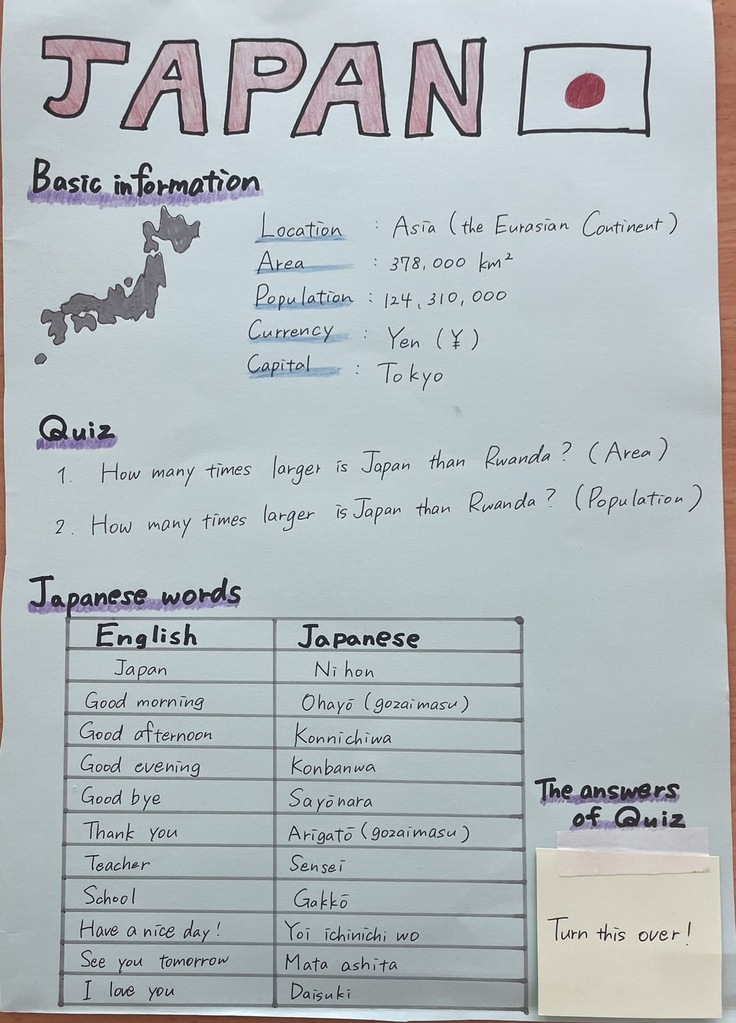 JAPAN
Basic information
Location : Asia (the Eurasian Continent)
Area : 378,000 km²
Population : 124,310,000
Currency : Yen (¥)
Capital : Tokyo
Quiz
1. How many times larger is Japan than Rwanda? (Area)
2. How many times larger is Japan than Rwanda? (Population)
Japanese words
English Japanese
Japan Nihon
Good morning Ohayō (gozaimasu)
Good afternoon Konnichiwa
Good evening Konbanwa
Good bye Sayōnara
Thank you Arigatō (gozaimasu)
Teacher Sensei
School Gakkō
Have a nice day! Yoi ichinichi wo
See you tomorrow Mata ashita
I love you Daisuki
The answers
of Quiz
Turn this over!